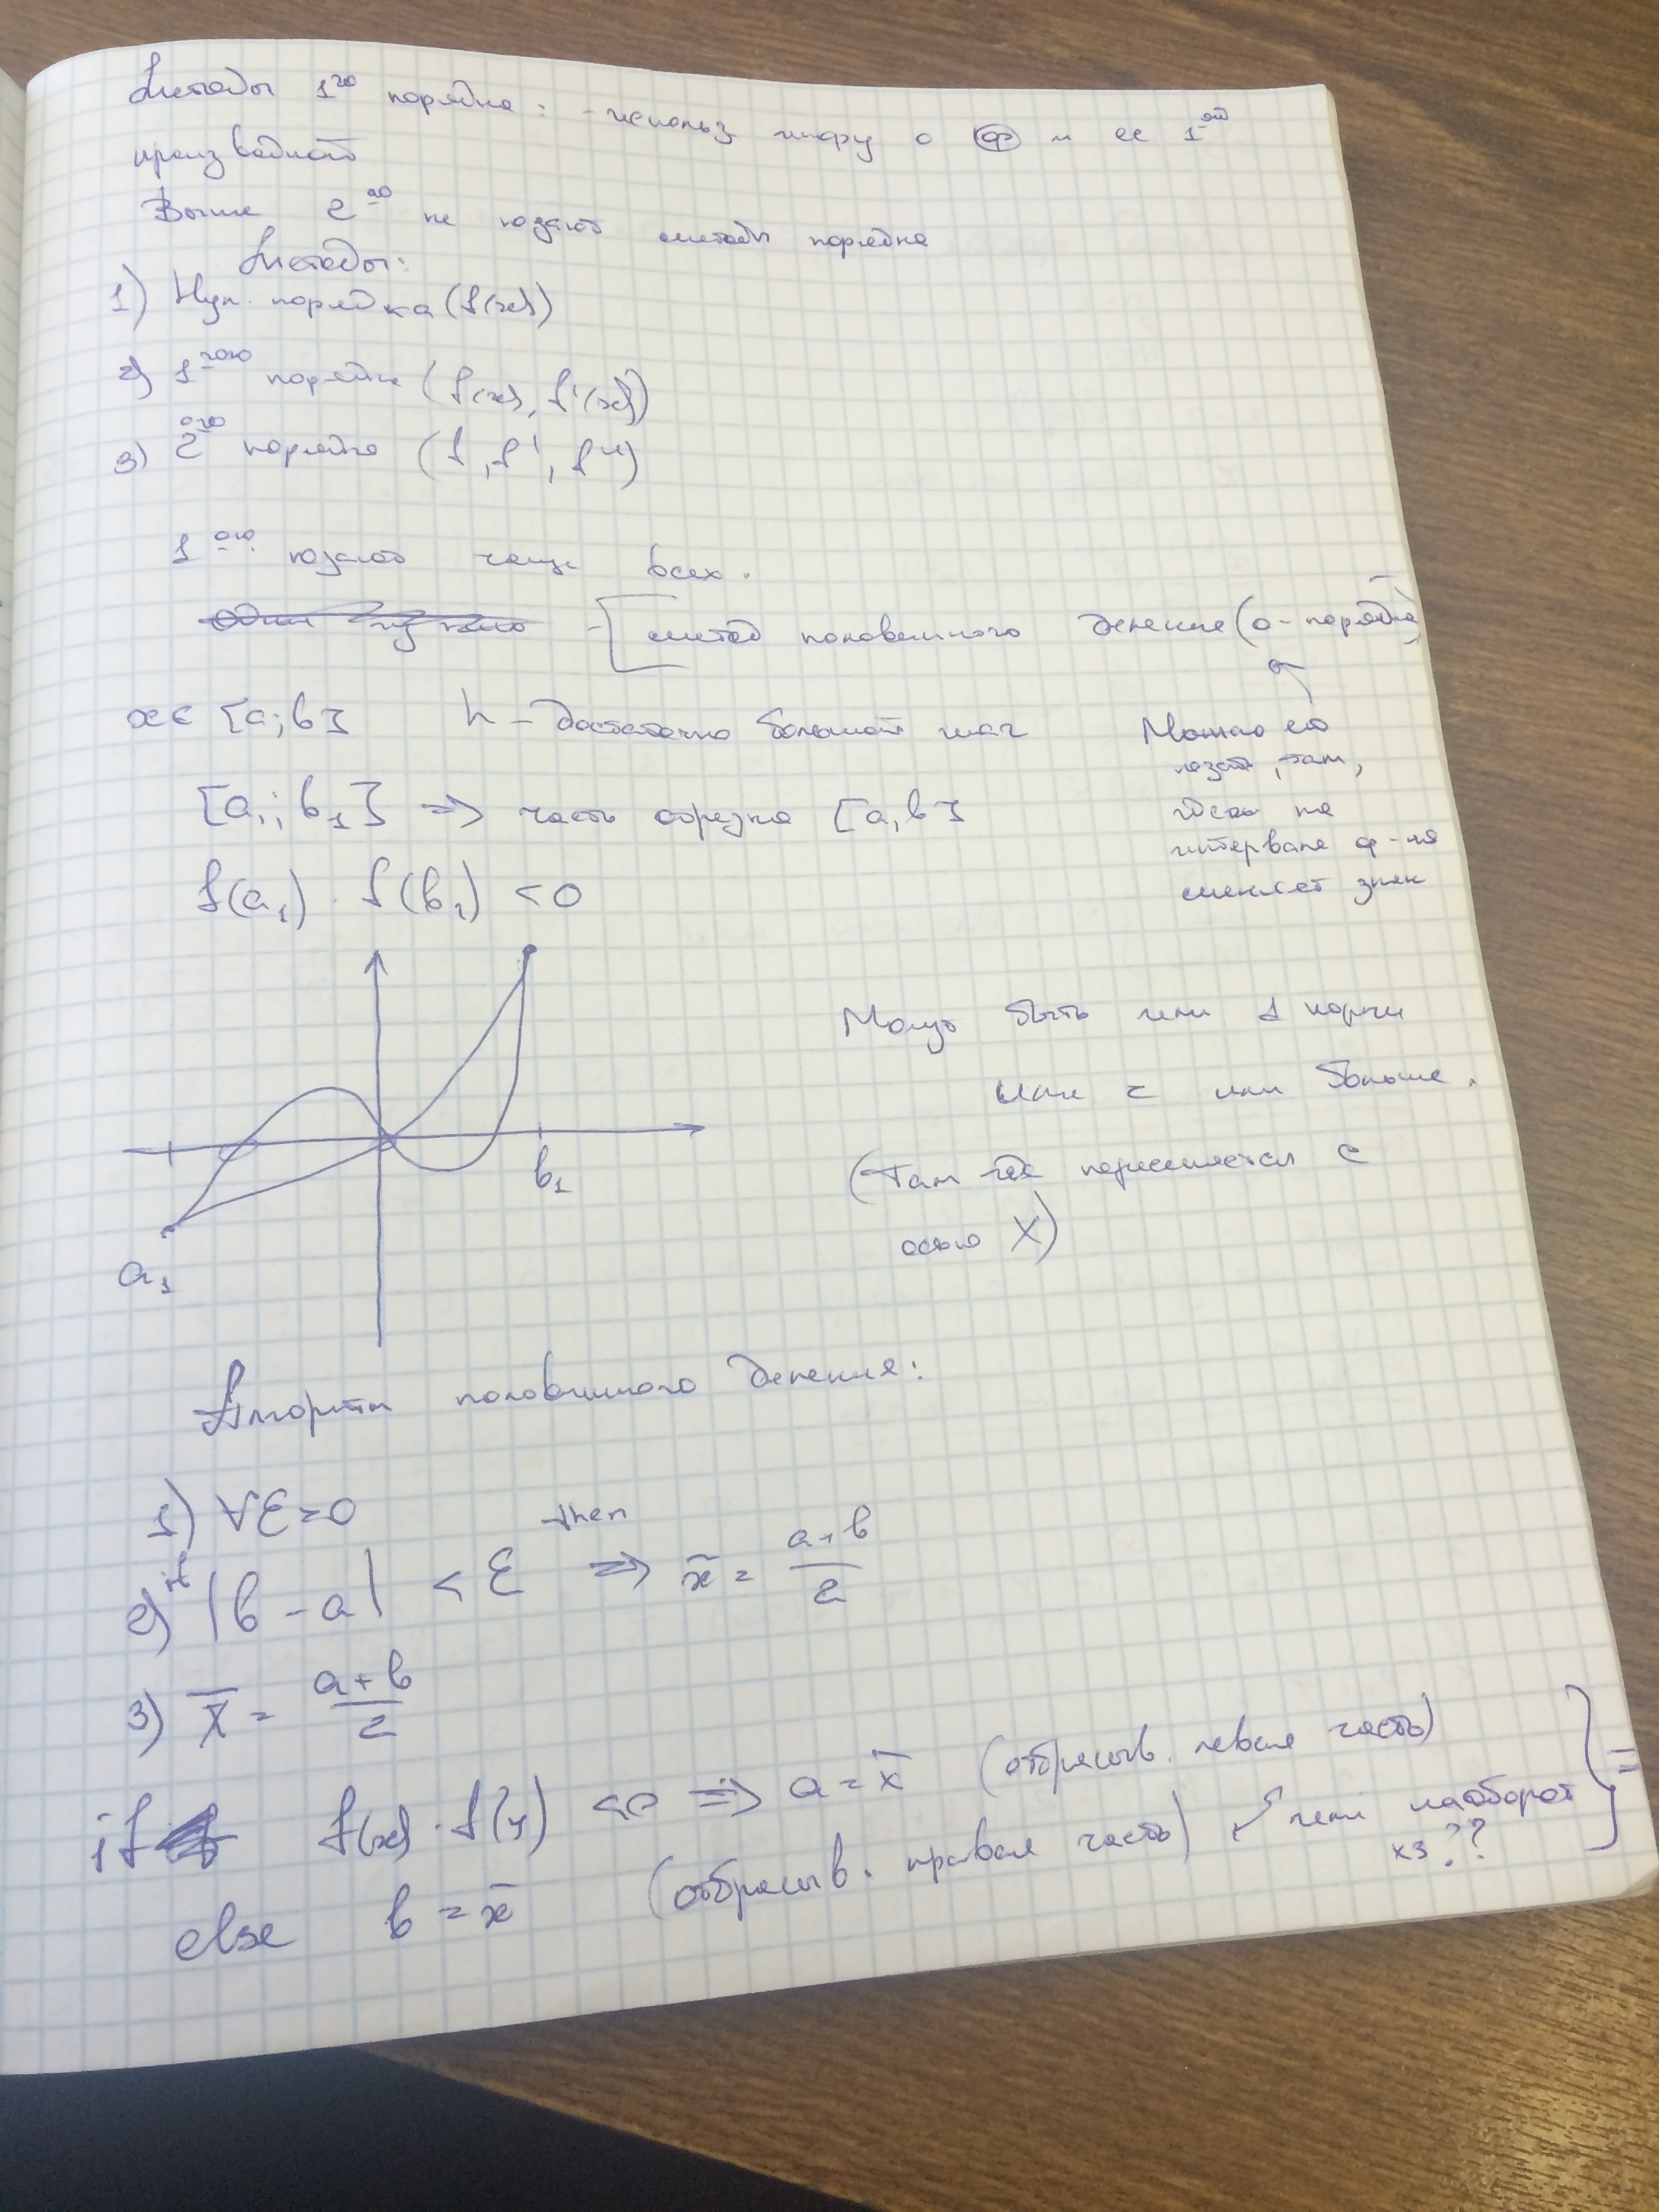 Методы 1го порядка: - использ инфу о ф и ее 1ой
производной
Выше 2го не юзают методы порядка
Методы:
1) Нул. порядка (f(x))
2) 1ого порядка (f(x), f'(x))
3) 2ого порядка (f, f', f'')
1ого юзают чаще всех.
- [ метод половинного деления (0-порядка)
x ∈ [a; b] h - достаточно большой шаг
Можно его
юзать, там,
если на
интервале ф-ия
меняет знак
[a1; b1] => часть отрезка [a, b]
f(a1) · f(b1) < 0
Могут быть или 1 корни
или 2 или больше.
(Там где пересекается с
осью X)
b1
a1
Алгоритм половинного деления:
1) ∀ε=0
2) if |b - a| < ε then => x̄ = (a+b)/2
3) x̄ = (a+b)/2
if f(x) · f(y) <0 => a = x̄ (отбрасыв. левая часть)
else b = x̄ (отбрасыв. правая часть) или наоборот
хз ??
} =